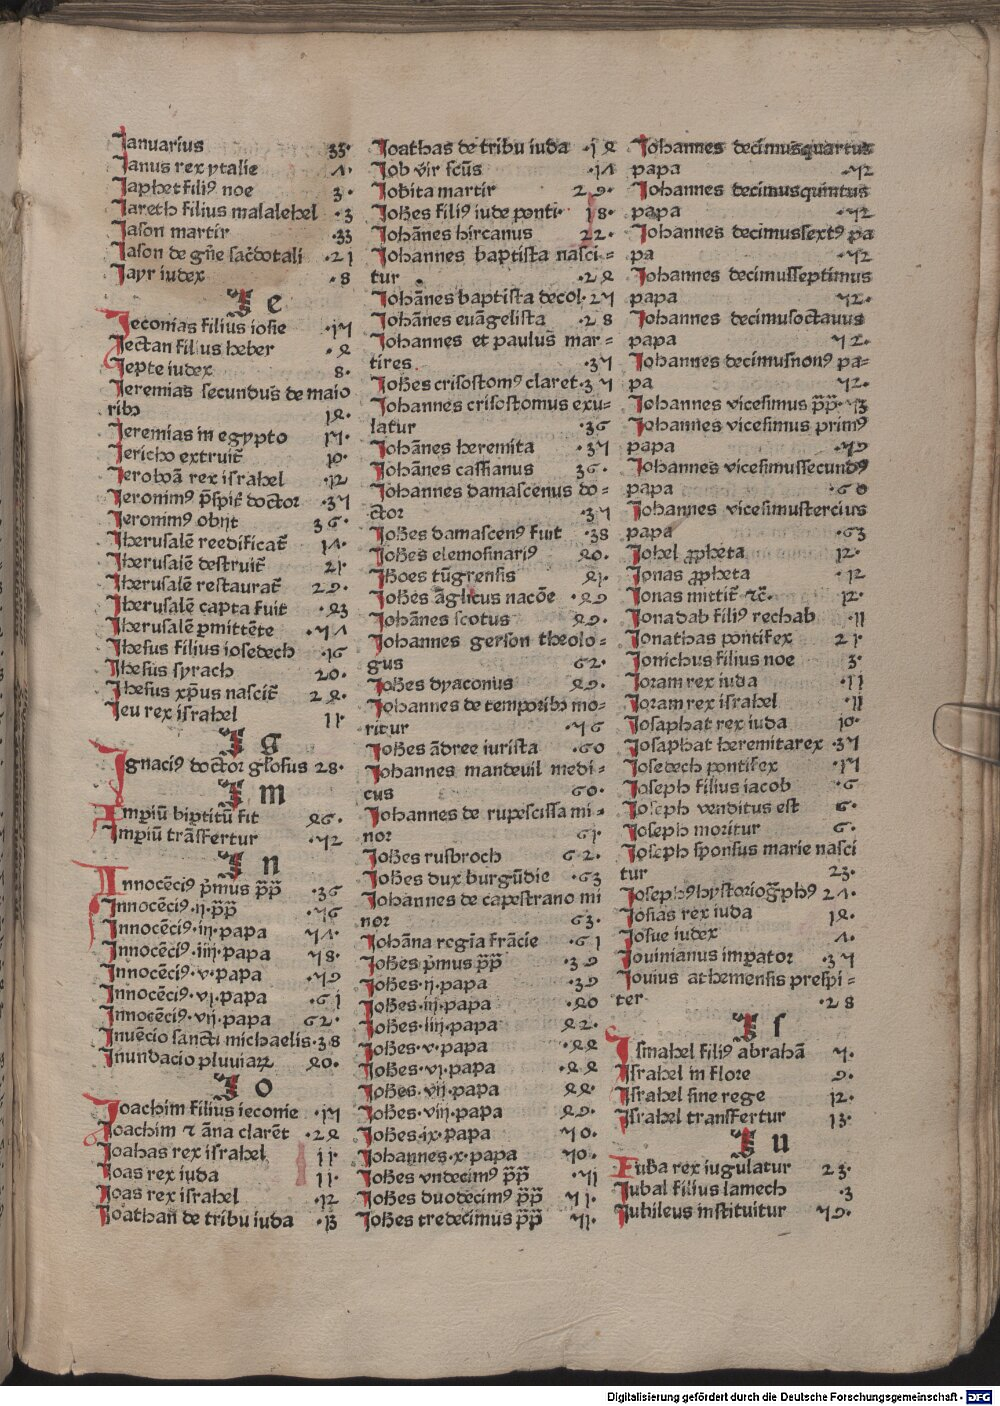 Ianuarius 33·
Ianus rex ytalie Λ·
Iaphet filiꝰ noe 3·
Iareth filius malalehel ·3
Iason martir ·33
Iason de gñe sac̄dotali ·21
Iayr iudex ·8
I e
Ieconias filius iosie ·1ꞁ
Iectan filius heber ·ꝭ
Iepte iudex 8·
Ieremias secundus de maio
ribꝰ 1ꝭ·
Ieremias in egypto 17·
Iericho extruit̄ 10·
Ieroboā rex israhel ·12
Ieronimꝰ p̄spit̄ doctor ·37
Ieronimꝰ obijt 36·
Iherusalē reedificat̄ 1Λ·
Iherusalē destruit̄ 21·
Iherusalē restaurat̄ 29·
Iherusalē capta fuit ·ꝭ3
Iherusalē ꝑmittēte ·7Λ
Ihesus filius iosedech ·16
Ihesus syrach 20·
Ihesus xp̄us nascit̄ 2ꝭ·
Ieu rex israhel 11·
I g
Ignaciꝰ doctor gl̄osus 28·
I m
Imꝑiū biꝑtitū fit ꝭ6·
Imꝑiū trāsfertur ·72
I n
Innocēciꝰ p̄mus p̄p̄ ·36
Innocēciꝰ·ij·p̄p̄ ·76
Innocēciꝰ·iij·papa 7Λ·
Innocēciꝰ·iiij·papa 78·
Innocēciꝰ·v·papa ·79
Innocēciꝰ·vj·papa ·61
Innocēciꝰ·vij·papa 62·
Inuēcio sancti michaelis·38
Inundacio pluuiaꝝ ꝭ0·
I o
Ioachim filius ieconie ·17
Ioachim ⁊ āna clarēt ·2ꝭ
Ioahas rex israhel 11·
Ioas rex iuda 11·
Ioas rex israhel ·12
Ioathan de tribu iuda ·13
Ioathas de tribu iuda ·1ꝭ
Iob vir scūs ·1Λ
Iobita martir 29·
Ioħes filiꝰ iude ponti· 18·
Iohānes hircanus 22·
Iohannes baptista nasci=
tur ·2ꝭ
Iohānes baptista decol· 27
Iohānes euāgelista ·28
Iohannes et paulus mar=
tires ·37
Ioħes crisostomꝰ claret·37
Iohannes crisostomus exu=
latur ·36
Iohānes heremita ·37
Iohānes cassianus 36·
Iohannes damascenus do=
ctor ·37
Ioħes damascenꝰ fuit ·38
Ioħes elemosinariꝰ ꝭ0·
Iħoes tūgrensis ꝭ1·
Ioħes āglicus nacōe ·ꝭ9
Iohānes scotus ꝭ9·
Iohannes gerson theolo=
gus 62·
Ioħes dyaconus ꝭ9·
Iohannes de temporibꝰ mo=
ritur ·76
Ioħes ādree iurista ·60
Iohannes mandeuil medi=
cus 60·
Iohannes de rupescissa mi=
nor 61·
Ioħes rusbroch 62·
Ioħes dux burgūdie ·63
Iohannes de capestrano mi
nor 63·
Iohāna regia frācie ·61
Ioħes p̄mus p̄p̄ ·39
Ioħes·ij·papa ·39
Ioħes·iij·papa ·ꝭ0
Ioħes·iiij·papa ꝭ2·
Ioħes·v·papa ·ꝭꝭ
Ioħes·vj·papa ·ꝭꝭ
Ioħes·vij·papa ꝭꝭ·
Ioħes·viij·papa ꝭ9·
Ioħes·ix·papa 70·
Iohannes·x·papa 70·
Ioħes vndecimꝰ p̄p̄ ·71
Ioħes duodecimꝰ p̄p̄ 71·
Ioħes tredecimus p̄p̄ 71·
Iohannes decimusquartus
papa ·72
Iohannes decimusquintus
papa ·72
Iohannes decimussextꝰ pa
pa ·72
Iohannes decimusseptimus
papa 72·
Iohannes decimusoctauus
papa 72·
Iohannes decimusnonꝰ pa=
pa 72·
Iohannes vicesimus p̄p̄·73
Iohannes vicesimus primꝰ
papa ·79
Iohannes vicesimussecundꝰ
papa ·60
Iohannes vicesimustercius
papa ·63
Iohel ꝓpheta 12·
Ionas ꝓpheta ·12
Ionas mittit̄ ⁊c̄· 12·
Ionadab filiꝰ rechab ·11
Ionathas pontifex 21·
Ionichus filius noe 3·
Ioram rex iuda ·11
Ioram rex israhel ·11
Iosaphat rex iuda 10·
Iosaphat heremita rex ·37
Iosedech pontifex ·17
Ioseph filius iacob ·6
Ioseph venditus est 6·
Ioseph moritur 6·
Ioseph sponsus marie nasci
tur 23·
Iosephꝰhystoriog̃phꝰ 2Λ·
Iosias rex iuda 1ꝭ·
Iosue iudex Λ·
Iouinianus imꝑator ·37
Iouius athemensis prespi=
ter ·28
I s
Ismahel filiꝰ abrahā 7·
Israhel in flore 9·
Israhel sine rege 12·
Israhel transfertur 13·
I u
Iuba rex iugulatur 23·
Iubal filius lamech ·3
Iubileus instituitur 79·
Digitalisierung gefördert durch die Deutsche Forschungsgemeinschaft - DFG